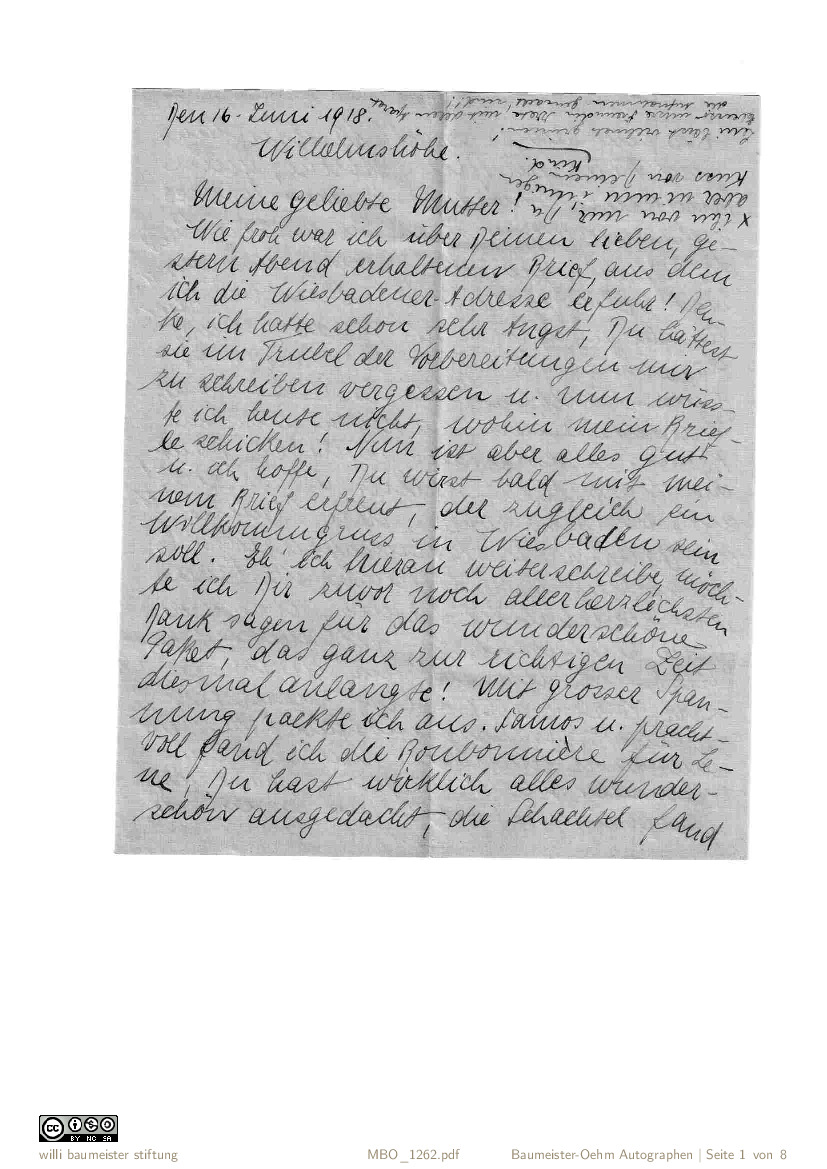 Den 16. Juni 1918.
Wilhelmshöhe.
Meine geliebte Mutter!
Wie froh war ich über Deinen lieben, ge-
stern Abend erhaltenen Brief, aus dem
ich die Wiesbadener Adresse erfuhr! Den-
ke, ich hatte schon sehr Angst, Du hättest
sie im Trubel der Vorbereitungen mir
zu schreiben vergessen u. nun wüss-
te ich heute nicht, wohin mein Brief-
le schicken! Nun ist aber alles gut
u. ich hoffe, Du wirst bald mit mei-
nem Brief erfreut, der zugleich ein
Willkommgruss in Wiesbaden sein
soll. Eh' ich hieran weiterschreibe, möch-
te ich Dir zuvor noch allerherzlichsten
Dank sagen für das wunderschöne
Paket, das ganz zur richtigen Zeit
diesmal anlangte! Mit grosser Span-
nung packte ich aus. Famos u. pracht-
voll fand ich die Bonbonnière für Le-
ne, Du hast wirklich alles wunder-
schön ausgedacht, die Schachtel fand
x ihn von mir, Du
aber nimm innigen
Kuss von Deinem
Kind.
die Aufnahmen gemacht sind!!
willi baumeister stiftung
MBO_1262.pdf
Baumeister-Oehm Autographen | Seite 1 von 8
CC BY NC SA